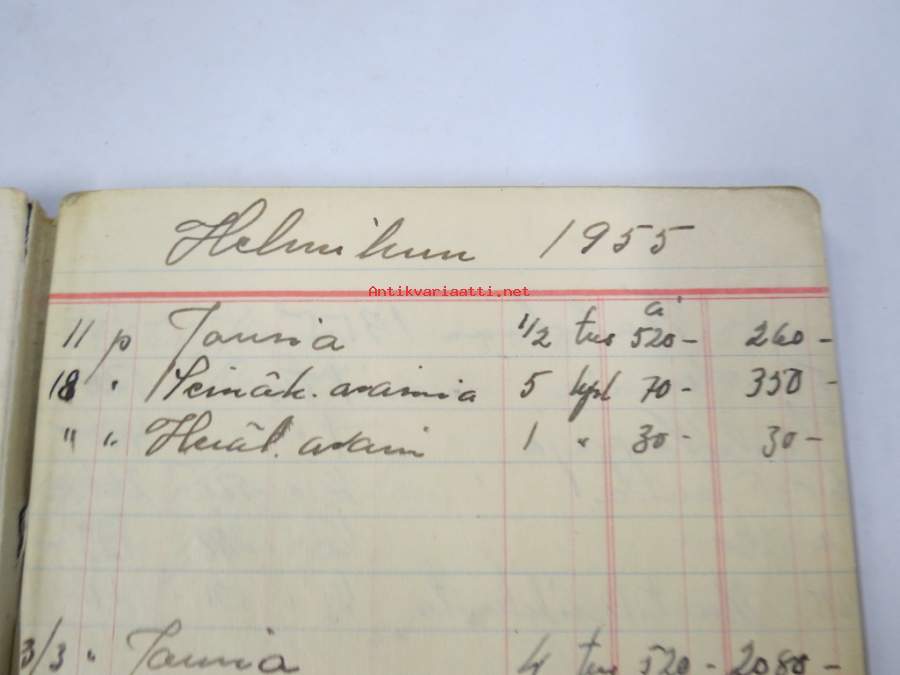 Helmikuu 1955
Antikvariaatti.net
à
11 p Jousia 1/2 tus 520- 260-
18 " Seinäk. avaimia 5 kpl 70- 350-
" " avain 1 " 30- 30-
3/3 " Jousia 4 tus 520- 2080-